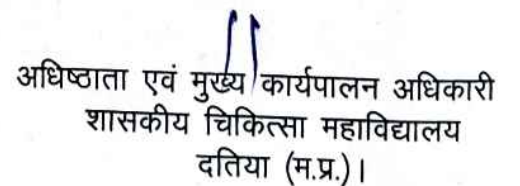 अधिष्ठाता एवं मुख्य कार्यपालन अधिकारी
शासकीय चिकित्सा महाविद्यालय
दतिया (म.प्र.)।